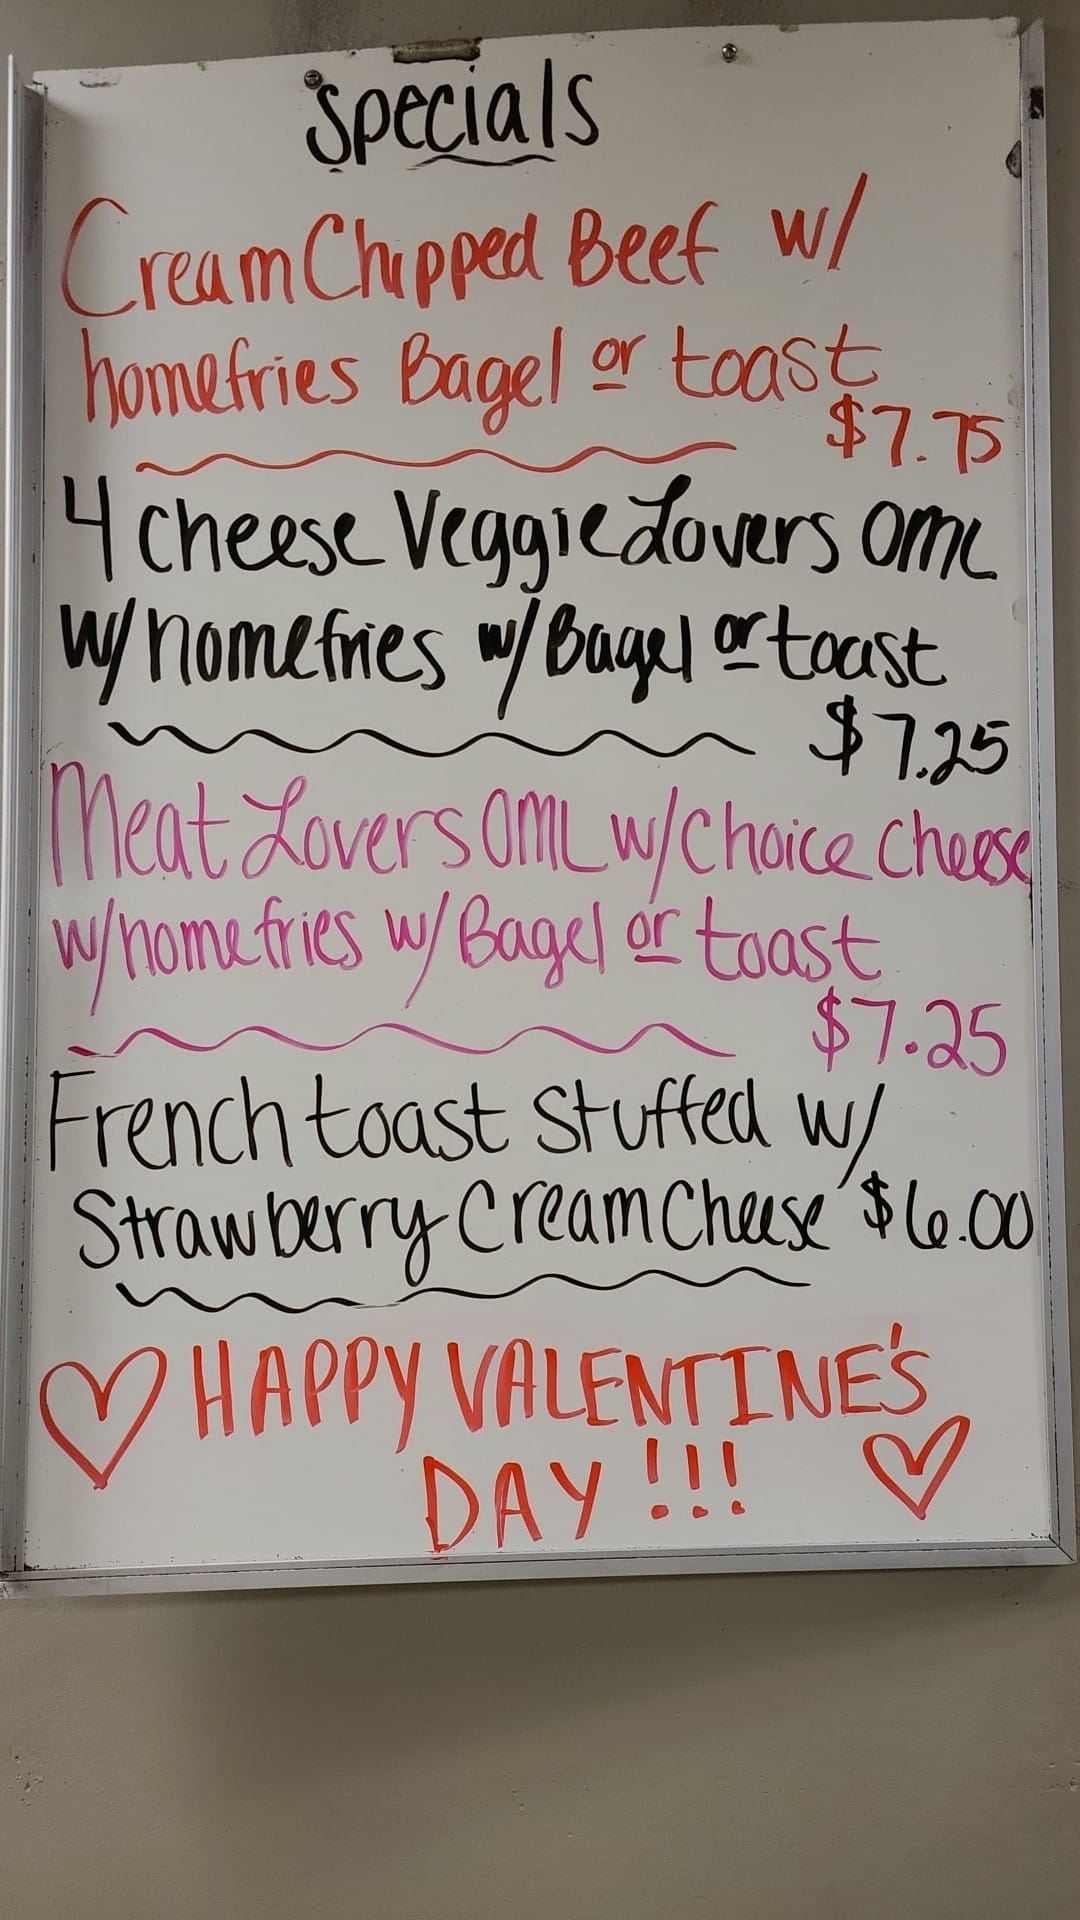 Specials
Cream Chipped Beef w/
homefries Bagel or toast
$7.75
4 cheese Veggie Lovers OML
w/homefries w/Bagel or toast
$7.25
Meat Lovers OML w/choice cheese
w/homefries w/Bagel or toast
$7.25
French toast stuffed w/
Strawberry Cream Cheese $6.00
HAPPY VALENTINE'S
DAY !!!